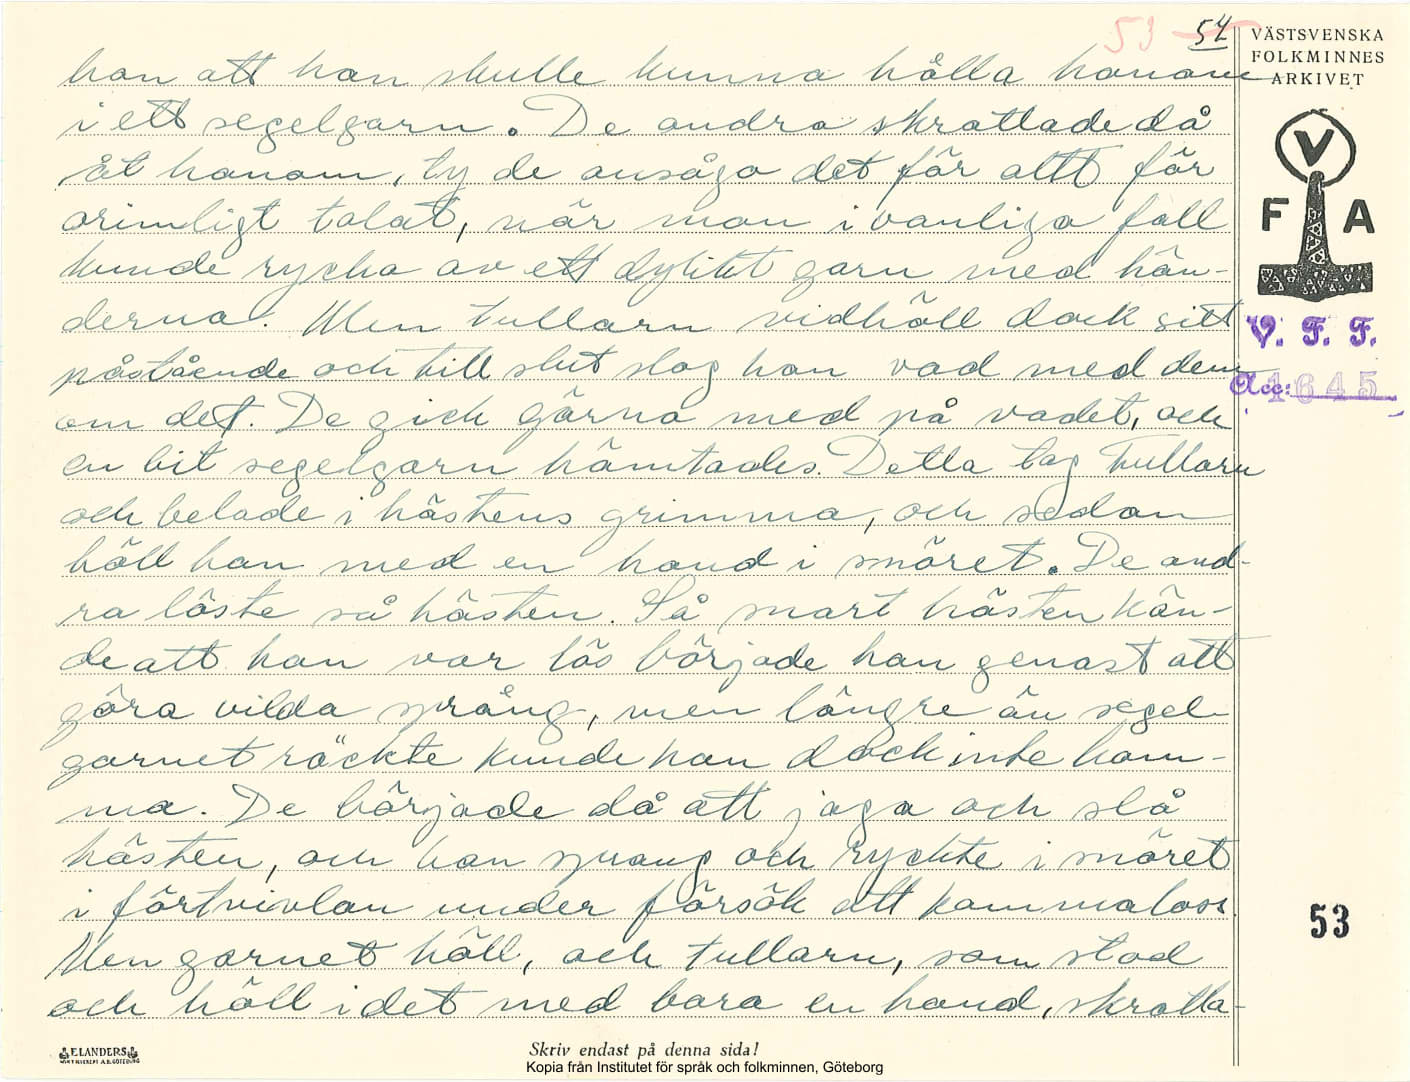 53 54
VÄSTSVENSKA
FOLKMINNES
ARKIVET
V
F A
V. F. F.
Acc: 1645
han att han skulle kunna hålla honom
i ett segelgarn. De andra skrattade då
åt honom, ty de ansåga det för allt för
orimligt talat, när man i vanliga fall
kunde rycka av ett dylikt garn med hän-
derna. Men tullarn vidhöll dock sitt
påstående och till slut slog han vad med dem
om det. De gick gärna med på vadet, och
en bit segelgarn hämtades. Detta tog tullarn
och belade i hästens grimma, och sedan
höll han med en hand i snöret. De and-
ra löste så hästen. Så snart hästen kän-
de att han var lös började han genast att
göra vilda språng, men längre än segel-
garnet räckte kunde han dock inte kom-
ma. De började då att jaga och slå
hästen, och han sprang och ryckte i snöret
i förtvivlan under försök att komma loss.
Men garnet höll, och tullarn, som stod
och höll i det med bara en hand, skratta-
53
ELANDERS
Skriv endast på denna sida!
Kopia från Institutet för språk och folkminnen, Göteborg